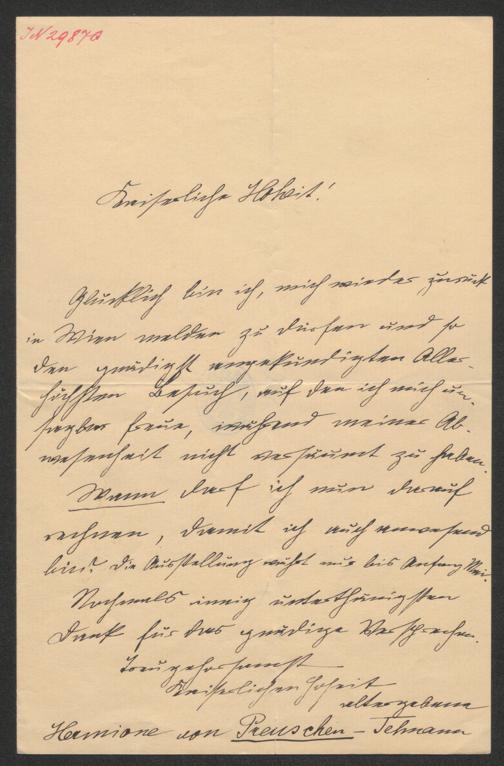 IN 29870
Kaiserliche Hoheit!
Glücklich bin ich, mich wieder zurück
in Wien melden zu dürfen und so
den gnädigst angekündigten Aller-
höchsten Besuch, auf den ich mich un-
sagbar freue, während meiner Ab-
wesenheit nicht versäumt zu haben.
Wann darf ich nun darauf
rechnen, damit ich auch anwesend
bin? Die Ausstellung währt nur bis Anfang Mai.
Nochmals innig unterthänigsten
Dank für das gnädige Versprechen.
Treugehorsamst
Kaiserlichen Hoheit
ergebene
Hermione von Preuschen-Telmann